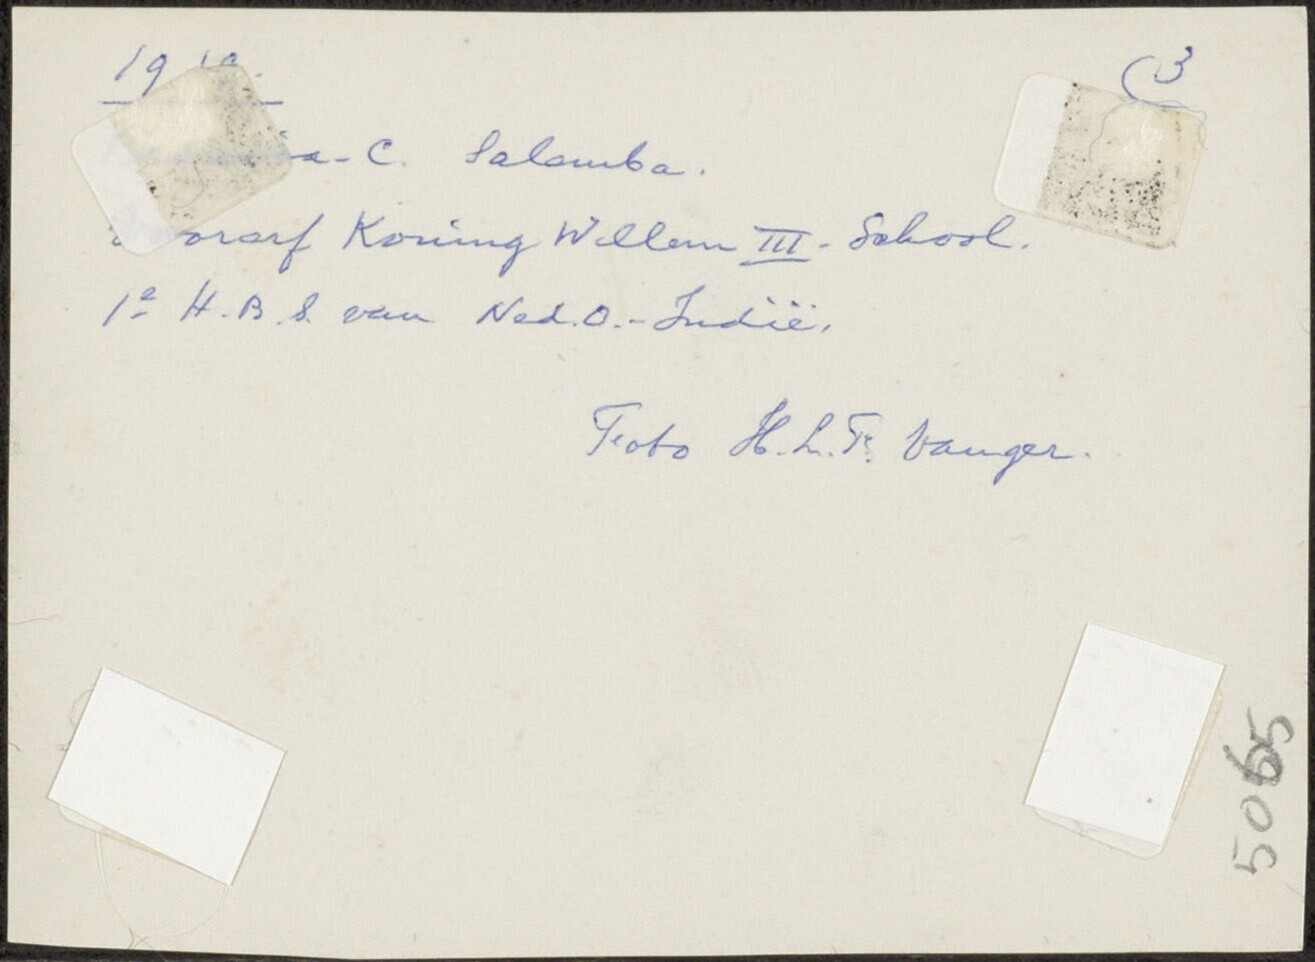 C3
-C. Salemba.
Koning Willem III-School.
1e H.B.S. van Ned.O.-Indië.
Foto H.L.F. Vanger.
5065